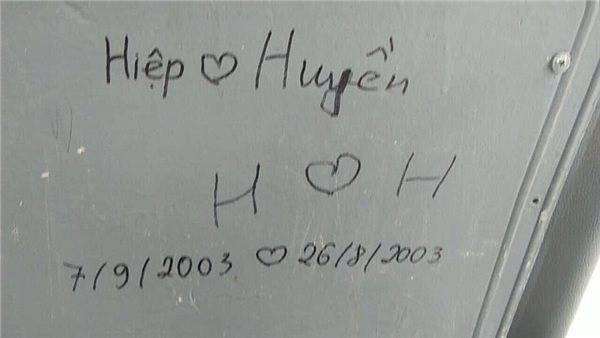 Hiệp ♡ Huyền
H ♡ H
7/9/2003 ♡ 26/8/2003